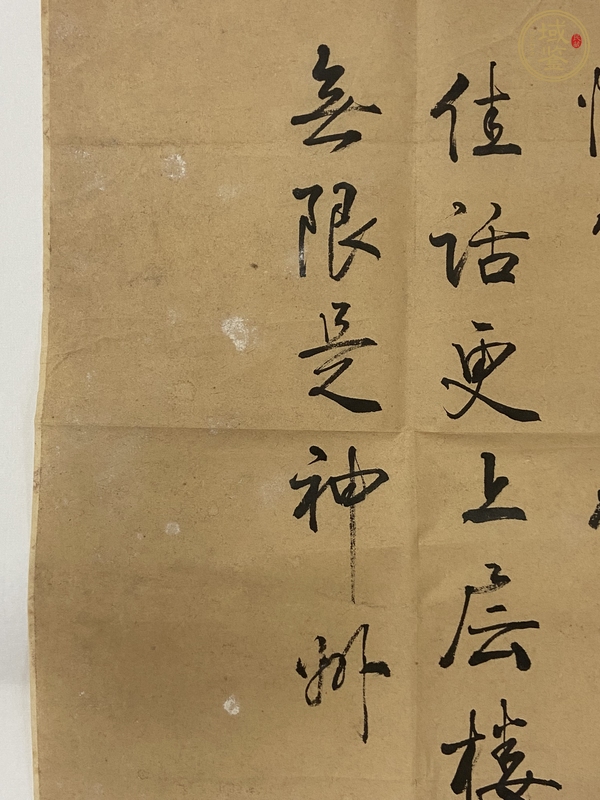 佳话更上层楼
無限是神州